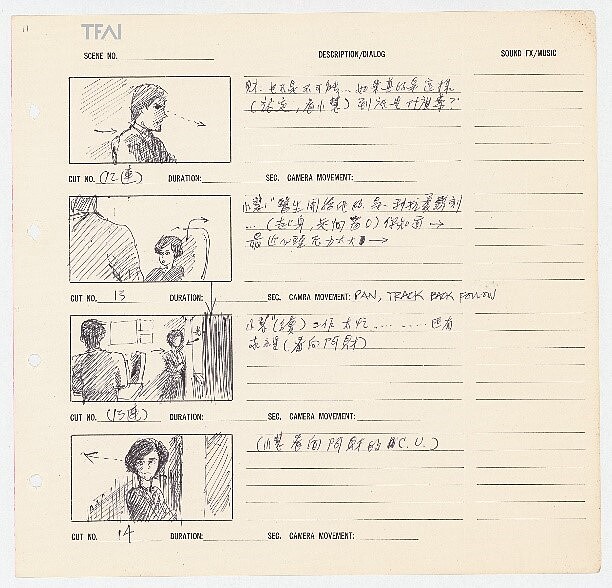 11
TFAI
SCENE NO. DESCRIPTION/DIALOG SOUND FX/MUSIC
財. 也不是不可能... 如果真的是這樣
(決定, 看小慧) 到底是什麼藥?
CUT NO. (12連) DURATION: SEC. CAMERA MOVEMENT:
小慧: 醫生開給他的是一種抗憂鬱劑
... (起身, 走向窗口) 你知道 →
最近心理壓力太大 →
CUT NO. 13 DURATION: SEC. CAMRA MOVEMENT: PAN, TRACK BACK FOLLOW
小慧 (續) 工作太忙 .... ...... 還有
(看向阿財)
CUT NO. (13連) DURATION: SEC. CAMERA MOVEMENT:
(小慧看向阿財的 C.U.)
CUT NO. 14 DURATION: SEC. CAMERA MOVEMENT: